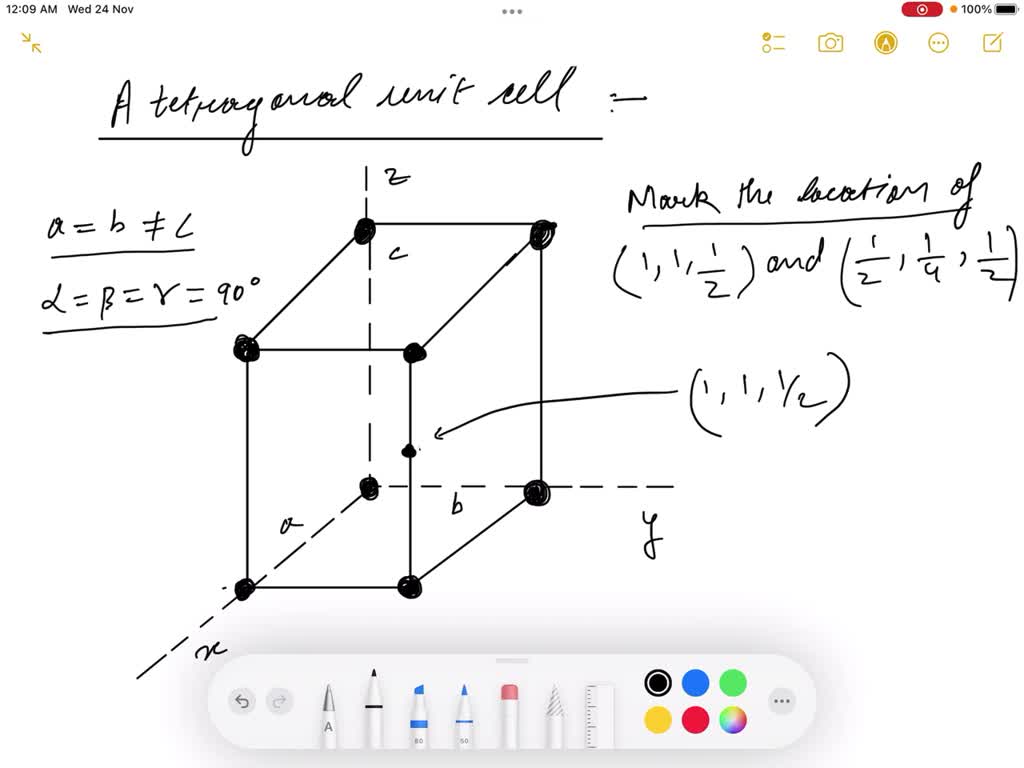 12:09 AM Wed 24 Nov
100%
A tetragonal unit cell :-
a = b ≠ c
α = β = γ = 90°
Mark the location of
(1, 1, 1/2) and (1/2, 1/4, 1/2)
z
c
(1, 1, 1/2)
a
b
y
x
A
80
50